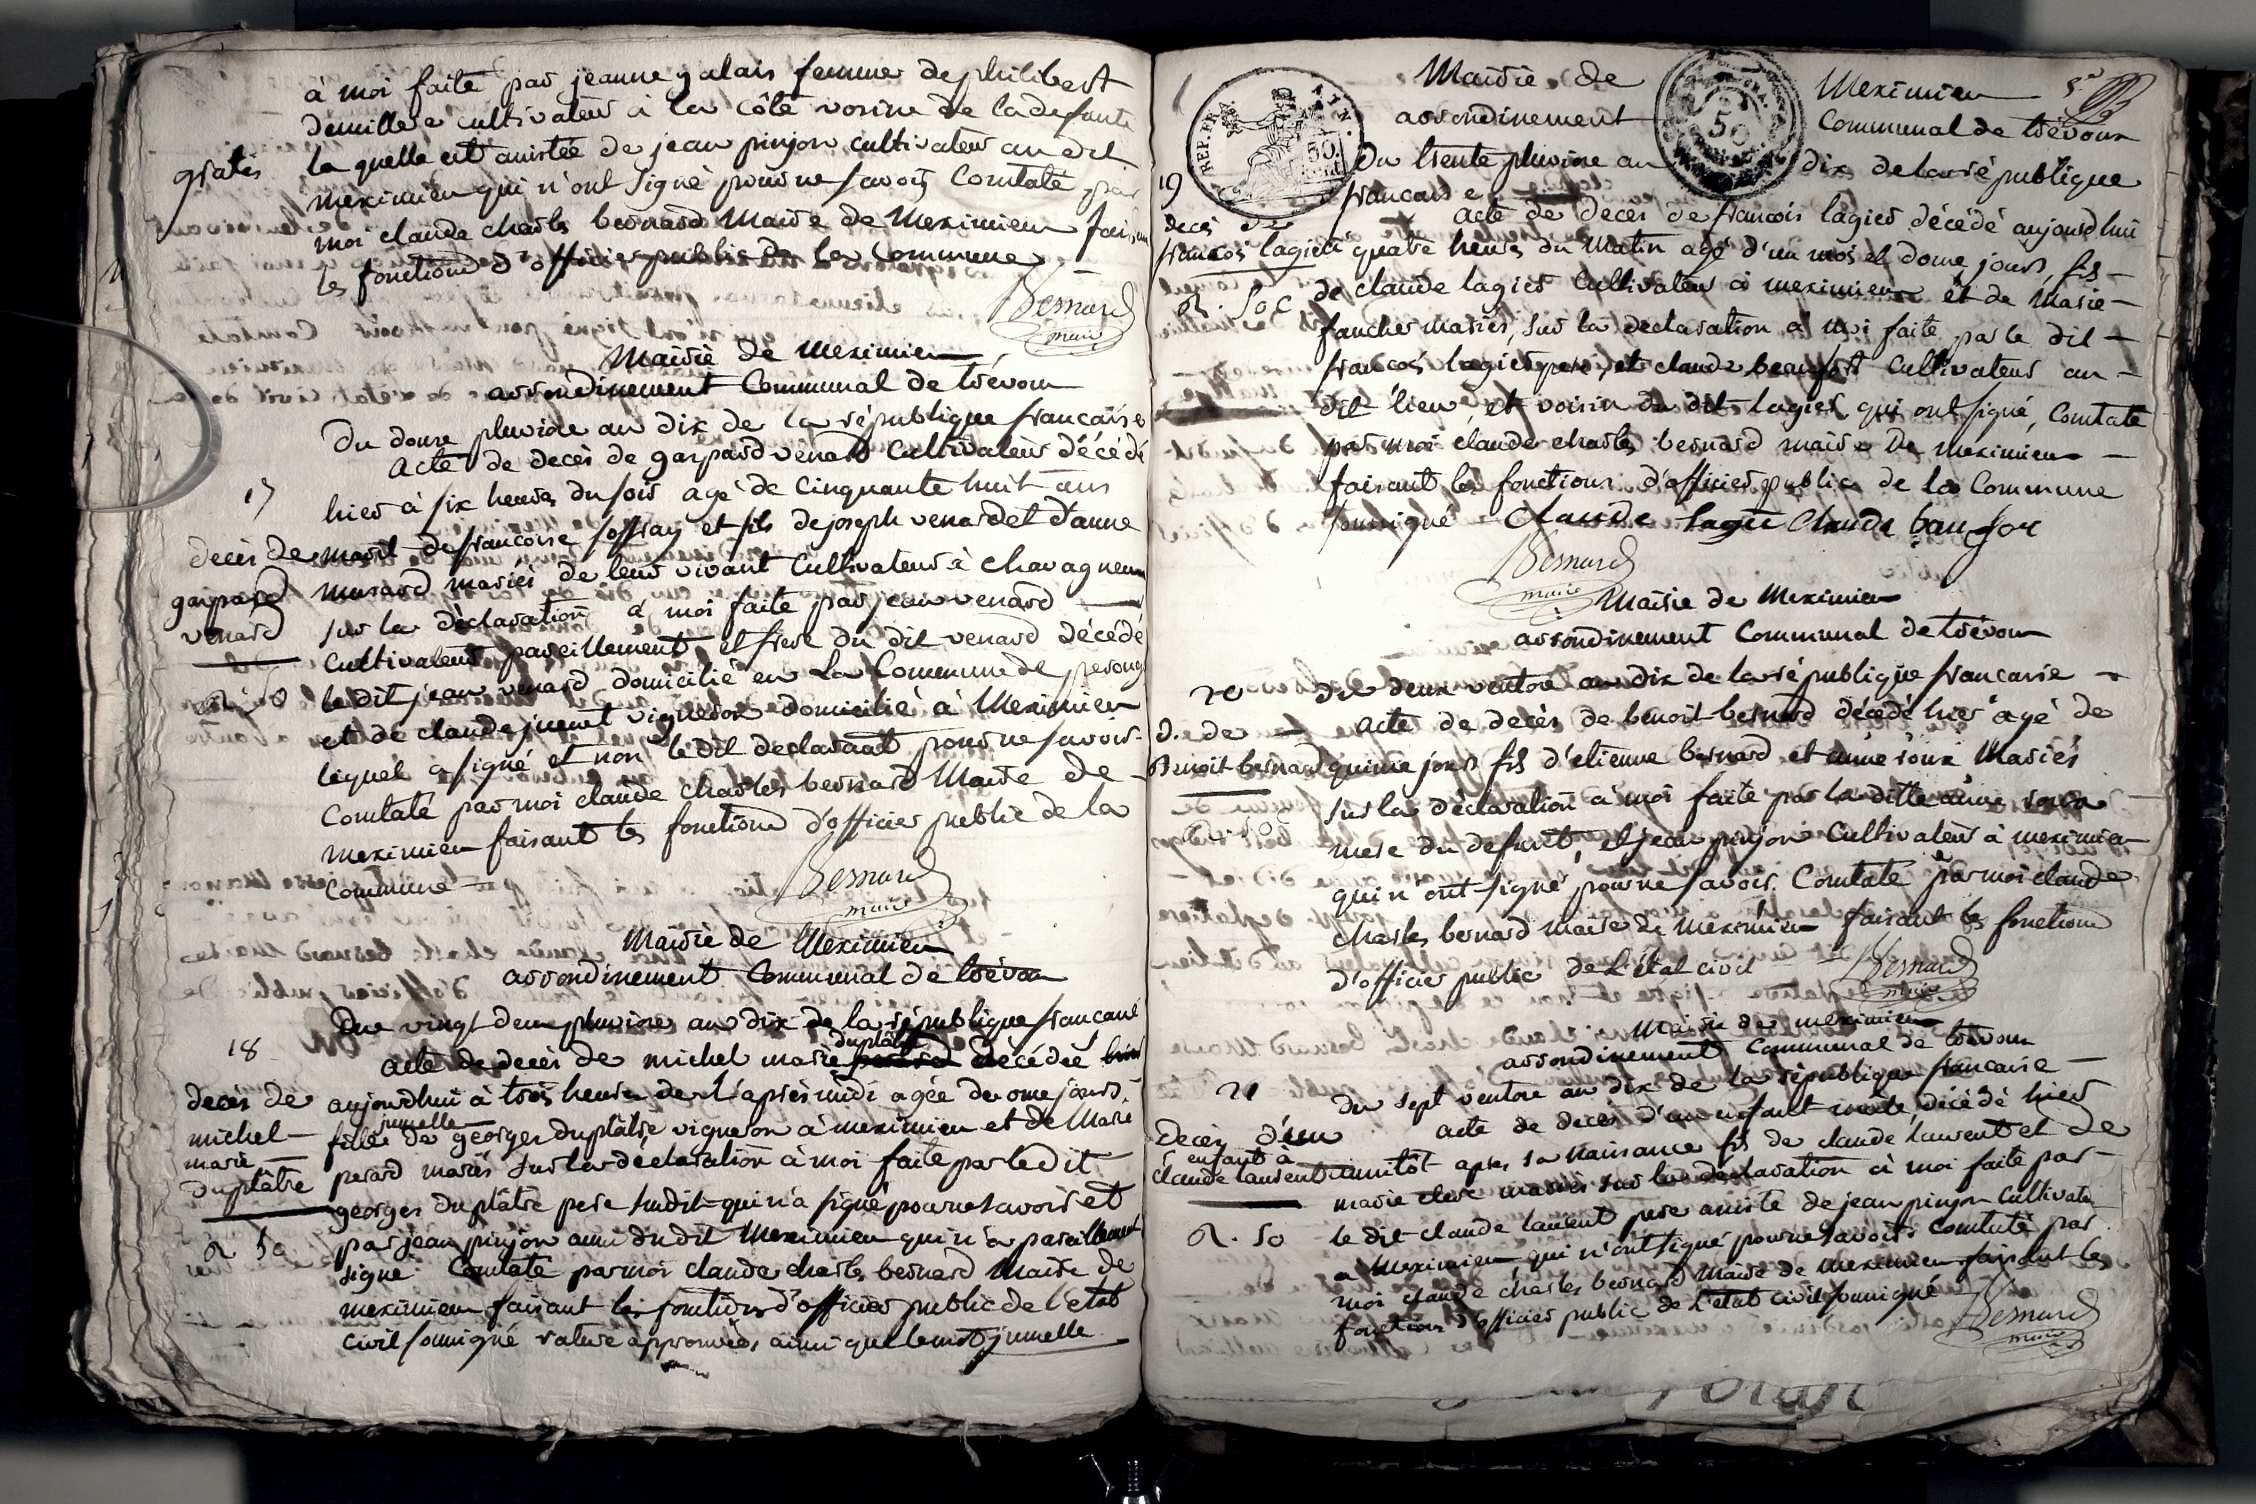 à moi faite par jeanne galais femme de philibert
cultivateur à la côte voisine de la defunte
gratis
la quelle est assistée de jean pinjon cultivateur au dit
meximieu qui n'ont signé pour ne savoir Constaté par
moi claude charles bernard Maire de Meximieu faisant
les fonctions d'officier public de la Commune
Bernard
maire
Mairie de Meximieu
arrondissement Communal de trévoux
Du douze pluviose an dix de la république francaise
acte de decès de gaspard venard Cultivateur décédé
17
hier à six heures du soir agé de cinquante huit ans
decès de
gaspard
venard
marit de francoise soffray et fils de joseph venard et d'anne
musard mariés de leur vivant Cultivateurs à chavagneux
sur la déclaration à moi faite par jean venard
cultivateur pareillement et frere du dit venard décédé
le dit jean venard domicilié en La Commune de perouge
et de claude juenet vigneron domicilié à Meximieu
lequel a signé et non le dit declarant pour ne savoir
Constaté par moi claude charles bernard Maire de
meximieu faisant les fonctions d'officier public de la
Commune
Bernard
maire
Mairie de Meximieu
arrondissement Communal de trévoux
Du vingt deux pluviose an dix de la république francaise
18
duplâtre
acte de decès de michel marie décédée
decès de
michel
marie
duplâtre
aujourdhui à trois heures de L'après midi agée de onze jours
jumelle
fille de georges duplâtre vigneron à meximieu et de Marie
perard mariés sur la déclaration à moi faite par le dit
georges duplâtre pere susdit qui n'a signé pour ne savoir et
R 50
par jean pinjon ami du dit Meximieu qui n'a pareillement
signé Constaté par moi claude charles bernard Maire de
meximieu faisant les fonctions d'officier public de l'etat
civil soussigné rature approuvées ainsi que le mot jumelle
Mairie de Meximieu
REP. FRA.
50
arrondissement Communal de trévoux
Du trente pluviose an dix de la république
francaise
19
decès de
francois lagier
acte de deces de francois lagier décédé aujourdhui
à quatre heures du matin agé d'un mois et douze jours, fils
R. 50 c
de claude lagier Cultivateur à meximieu et de Marie
faucher mariés, sur la declaration à moi faite par le dit
francois lagier pere, et claude beaufort Cultivateur au
dit lieu, et voisin du dit lagier qui ont signé, Constaté
par moi claude charles bernard maire De Meximieu
faisant les fonctions d'officier public de la Commune
soussigné Claude lagie Claude baufor
Bernard
maire
Mairie de Meximieu
arrondissement Communal de trévoux
20
Du deux ventose an dix de la république francaise
D. de
Benoit bernard
acte de decès de benoit bernard décédé hier agé de
quinze jours fils d'etienne bernard et anne roux Mariés
sur la déclaration à moi faite par la ditte anne roux
mere du defunt, et jean pinjon Cultivateur à meximieu
qui n'ont signé pour ne savoir. Constaté par moi claude
charles bernard maire de meximieu faisant les fonctions
d'officier public de L'état civil
Bernard
maire
Mairie de meximieu
arrondissement Communal de trévoux
21
du sept ventose an dix de la république francaise
Decès d'un
enfant à
claude laurent
acte de decès d'un enfant décédé hier
aussitôt apres sa naissance fils de claude laurent et de
marie clerc mariés sur la déclaration à moi faite par
R. 50
le dit claude laurent pere assisté de jean pinjon Cultivateur
a Meximieu, qui n'ont signé pour ne savoir. Constaté par
moi claude charles bernard Maire de meximieu faisant les
fonctions d'officier public de L'état civil soussigné
Bernard
maire